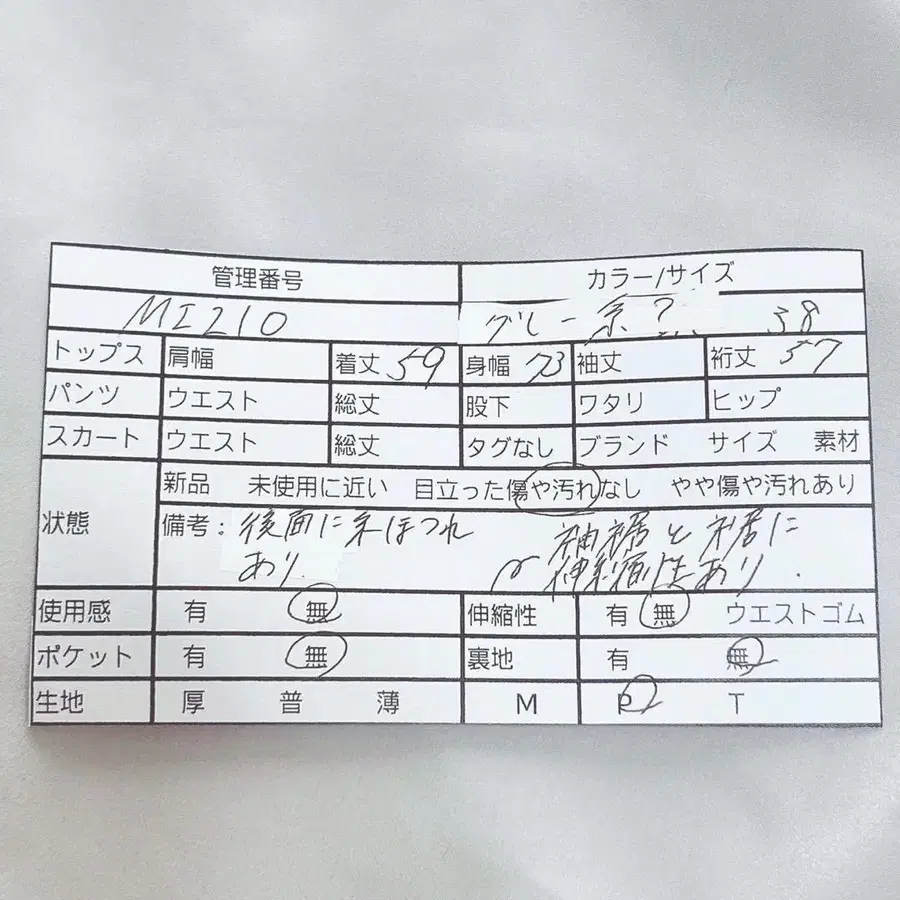 管理番号 カラー/サイズ
MI210 グレー系? 38
トップス 肩幅 着丈 59 身幅 73 袖丈 裄丈 57
パンツ ウエスト 総丈 股下 ワタリ ヒップ
スカート ウエスト 総丈 タグなし ブランド サイズ 素材
状態 新品 未使用に近い 目立った傷や汚れなし やや傷や汚れあり
備考: 後面に糸ほつれ 袖裾と裾に
あり. 伸縮性あり.
使用感 有 無 伸縮性 有 無 ウエストゴム
ポケット 有 無 裏地 有 無
生地 厚 普 薄 M P T